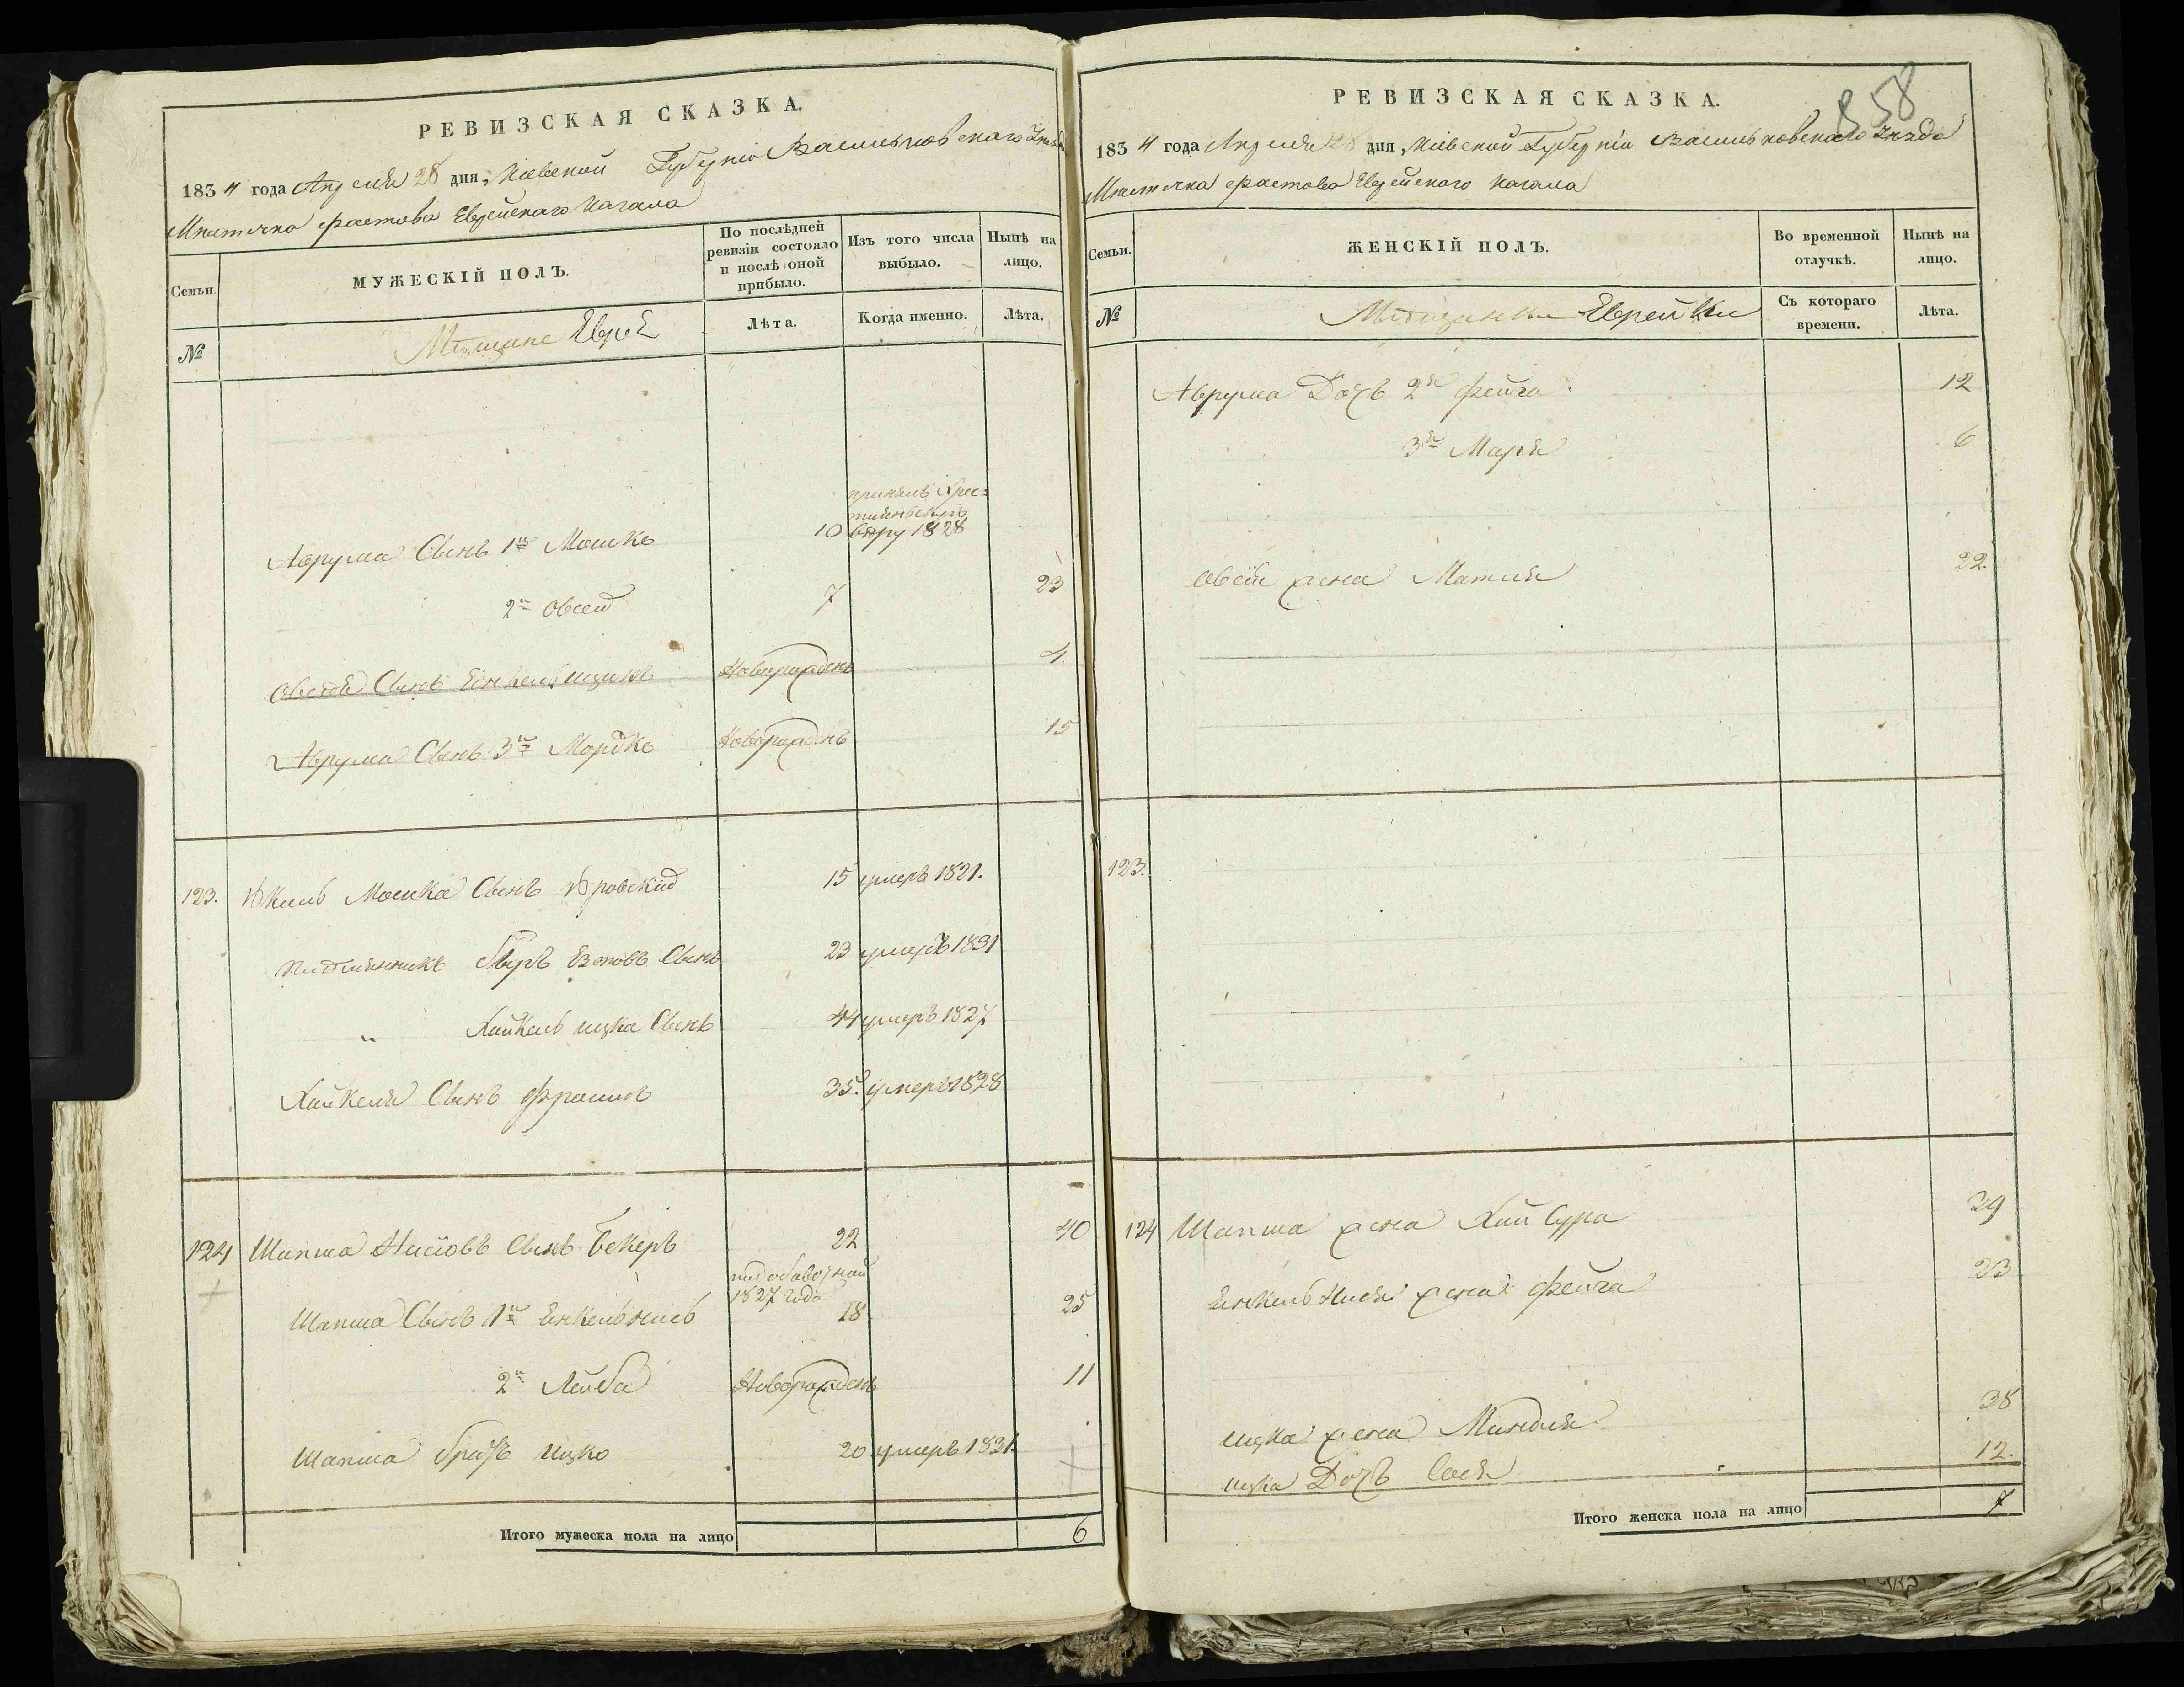 РЕВИЗСКАЯ СКАЗКА.
183 4 года Апреля 28 дня, Кіевской Губерніи Васильковскаго
Мѣстечка Фастова Еврейскаго Кагала
Семьи.
МУЖЕСКІЙ ПОЛЪ.
По послѣдней ревизіи состояло и послѣ оной прибыло.
Изъ того числа выбыло.
Нынѣ на лицо.
№
Мѣщане Евреи
Лѣта.
Когда именно.
Лѣта.
принялъ Хрис-
тіянскую
Аврума Сынъ 1й Мошко 10 вѣру 1828
2й Овсей 7 23
Овсея Сынъ Новорожденъ 4
Аврума Сынъ 3й Мордко Новорожденъ 15
123. Мошка Сынъ 15 умеръ 1821.
Племянникъ Сынъ 23 умеръ 1831
" Хайкель Ицка Сынъ 44 умеръ 1827
Хайкеля Сынъ Фроимъ 35. умеръ 1828
124 Шапша Сынъ Бекеръ 22 40
1827 года
Шапша Сынъ 1й 18 25
2й Лейба Новорожденъ 11
Шапша братъ Ицко 20 умеръ 1831.
Итого мужеска пола на лицо 6
РЕВИЗСКАЯ СКАЗКА.
858
183 4 года Апреля 28 дня, Кіевской Губерніи Васильковскаго уѣзда
Мѣстечка Фастова Еврейскаго Кагала
Семьи.
ЖЕНСКІЙ ПОЛЪ.
Во временной отлучкѣ.
Нынѣ на лицо.
№
Мѣщанки Еврейки
Съ котораго времени.
Лѣта.
Аврума Дочь 2я Фейга 12
3я Маря 6
Овсія жена Матля 22.
123.
124 Шапша жена Хая Сура 39
жена Фейга 23
Ицка жена Миндля 38
Ицка Дочь Сося 12.
Итого женска пола на лицо 7